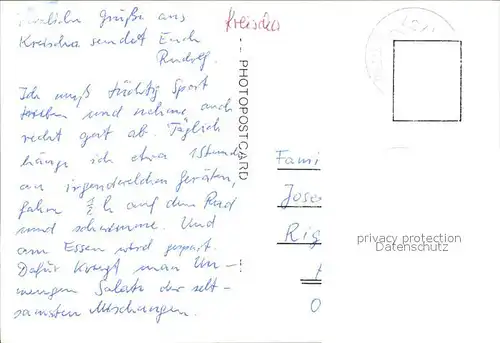 Herzliche Grüße aus
Kreischa sendet Euch
Rudolf.
Ich muß tüchtig Sport
treiben und nehme auch
recht gut ab. Täglich
hänge ich etwa 1 Stunde
an irgendwelchen Geräten,
fahre ½ h auf dem Rad
und schwimme. Und
am Essen wird gespart.
Dafür kriegt man Un-
mengen Salate der selt-
samsten Mischungen.
Kreischa
PHOTOPOSTCARD
Fami
Jose
Rig
privacy protection
Datenschutz